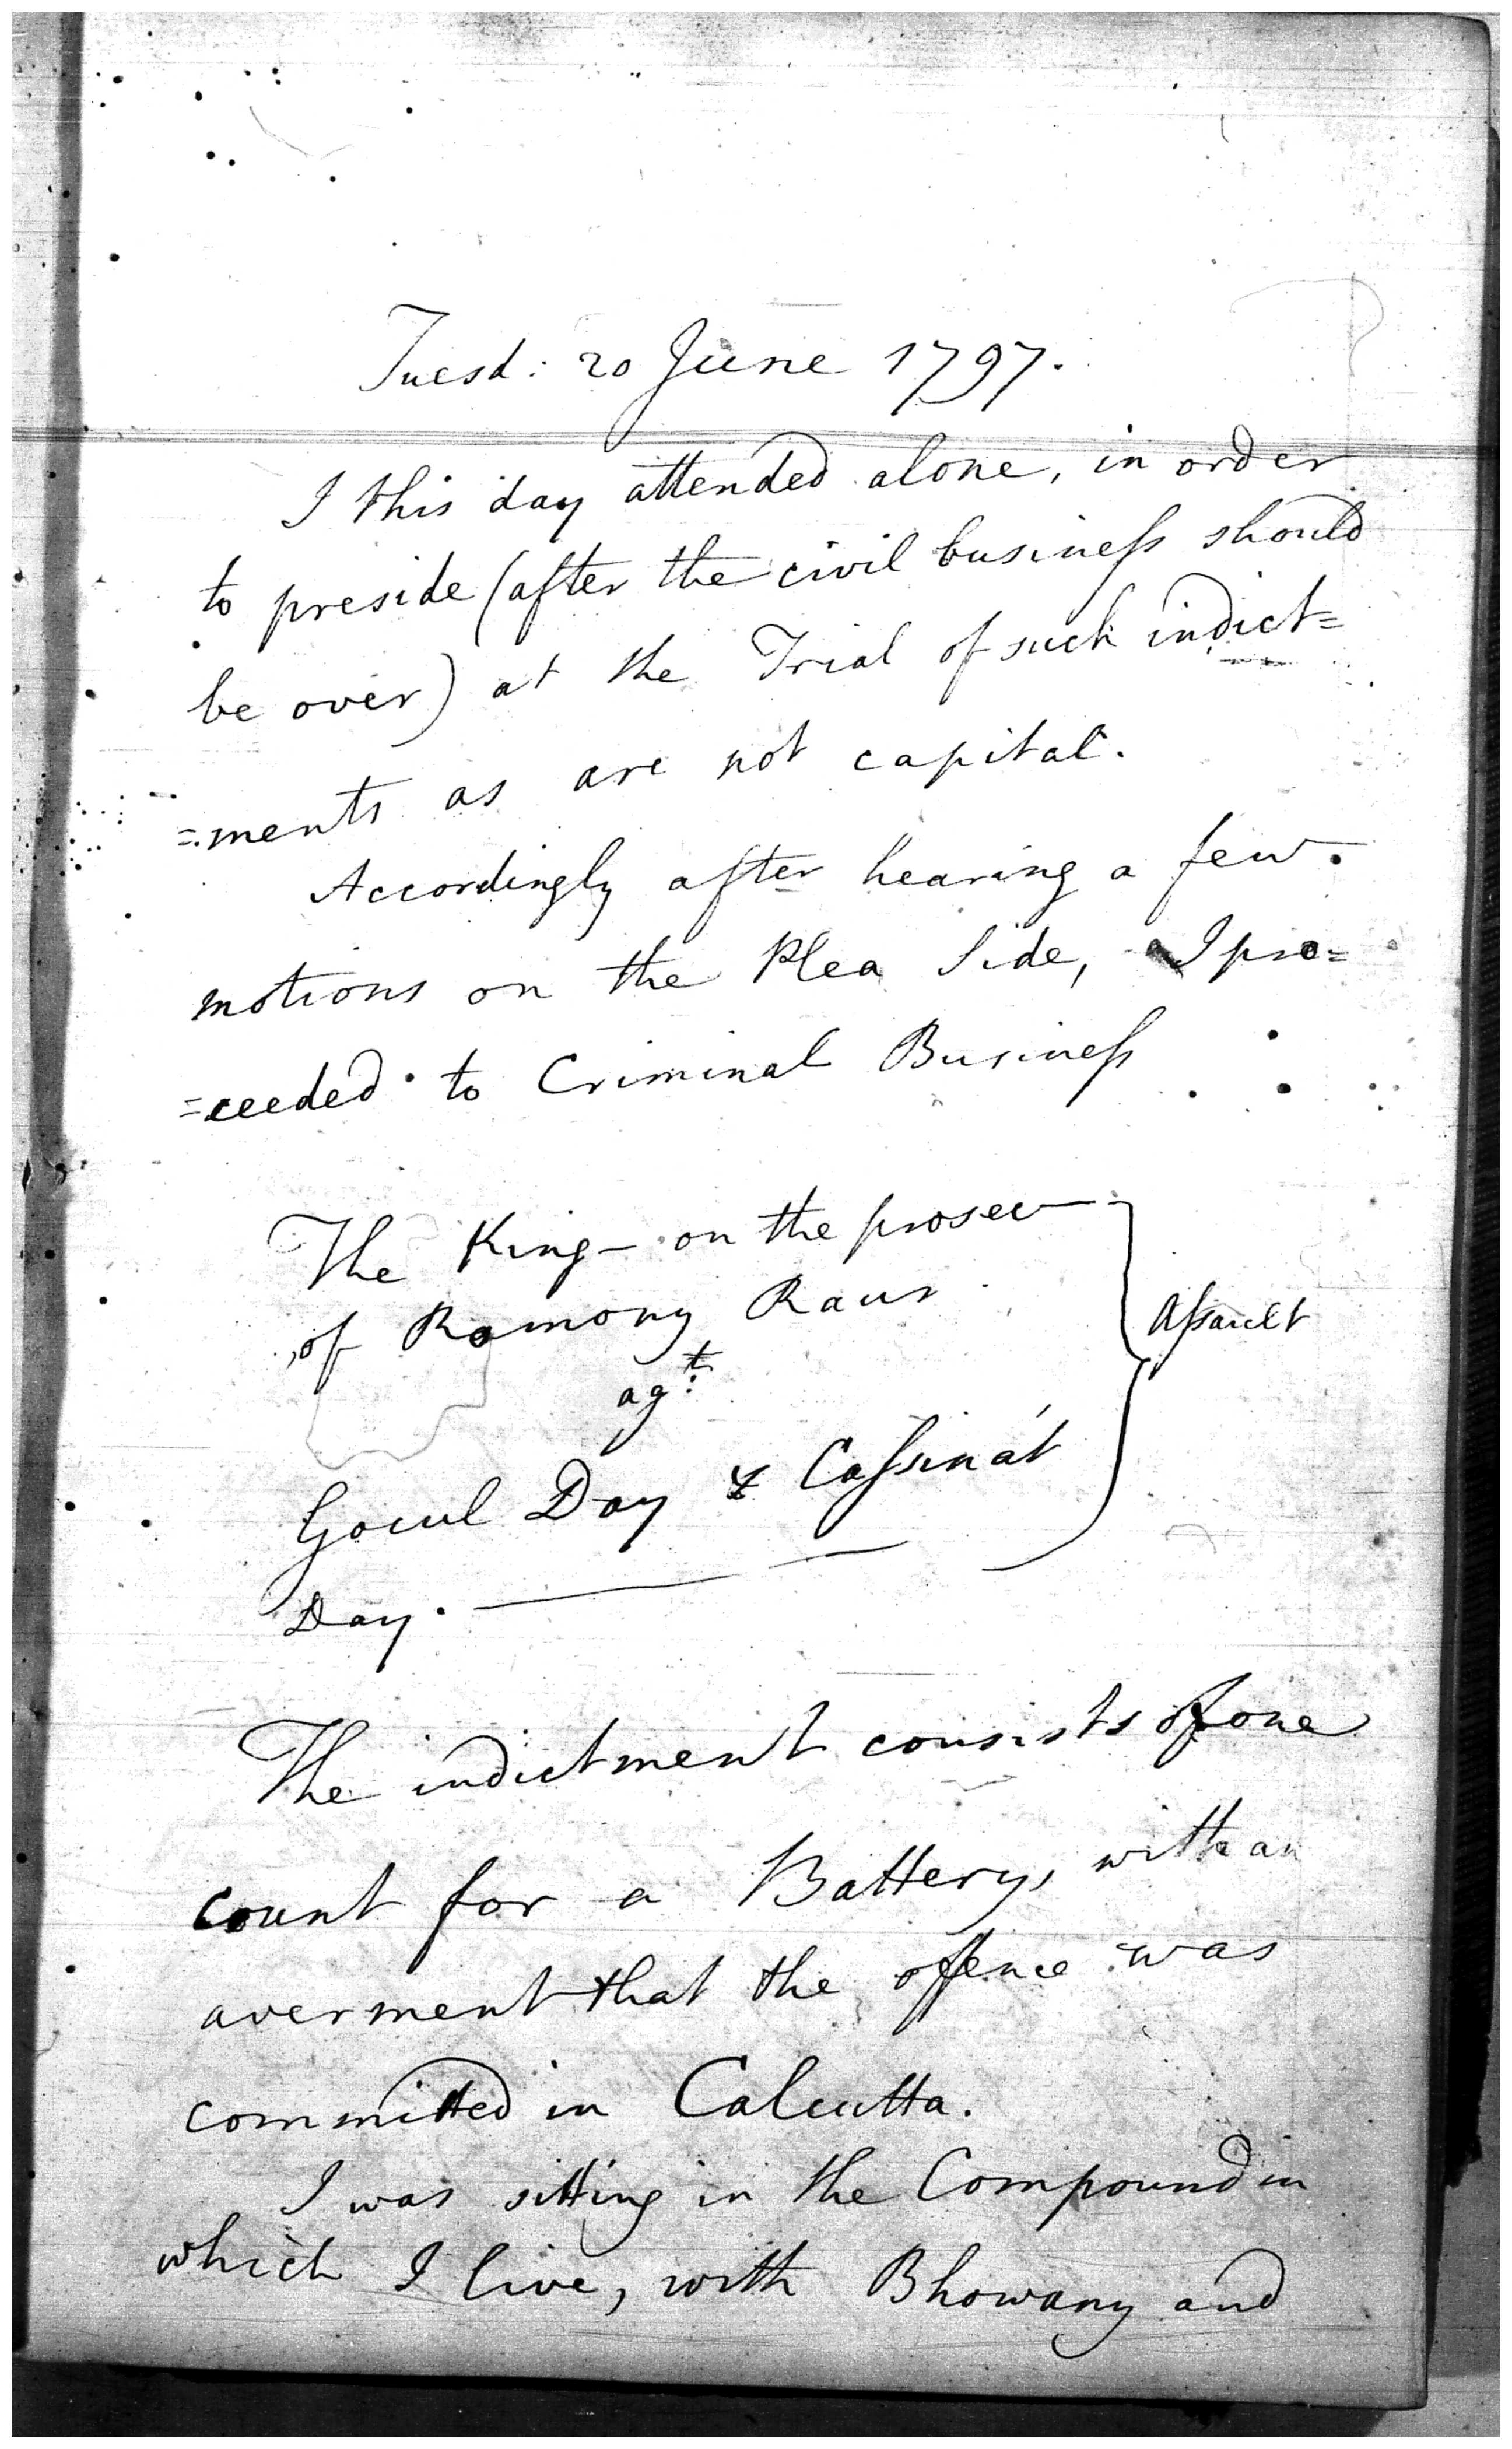 Tuesd: 20 June 1797.
I this day attended alone, in order
to preside (after the civil business should
be over) at the Trial of such indict=
=ments as are not capital.
Accordingly after hearing a few
motions on the Plea Side, I pro=
=ceeded to Criminal Business
The King - on the prosec
of Ramony Raur
agt.
Assault
Gocul Day & Cassinat
Day.
The indictment consists of one
count for a Battery, with an
averment that the offence was
committed in Calcutta.
I was sitting in the Compound in
which I live, with Bhowany and